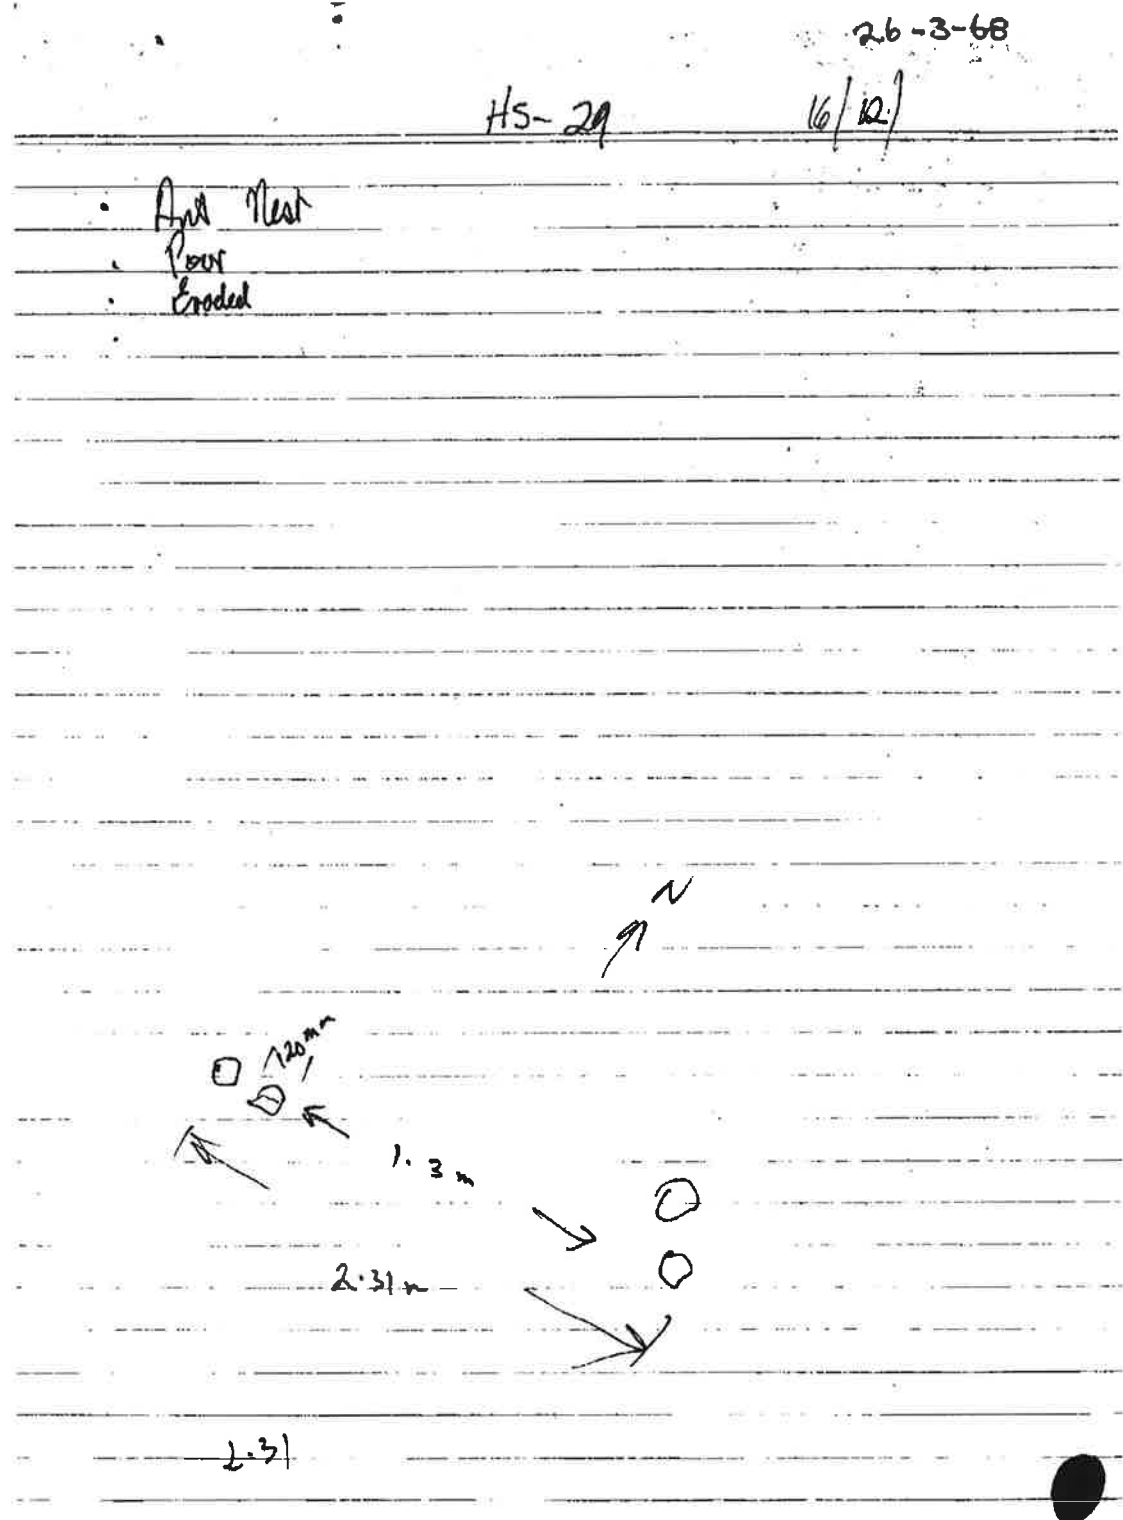 26-3-68
HS-29 16/12/
• Ant Nest
• Poor
• Eroded
•
N
120mm
1.3m
2.31m
2.31